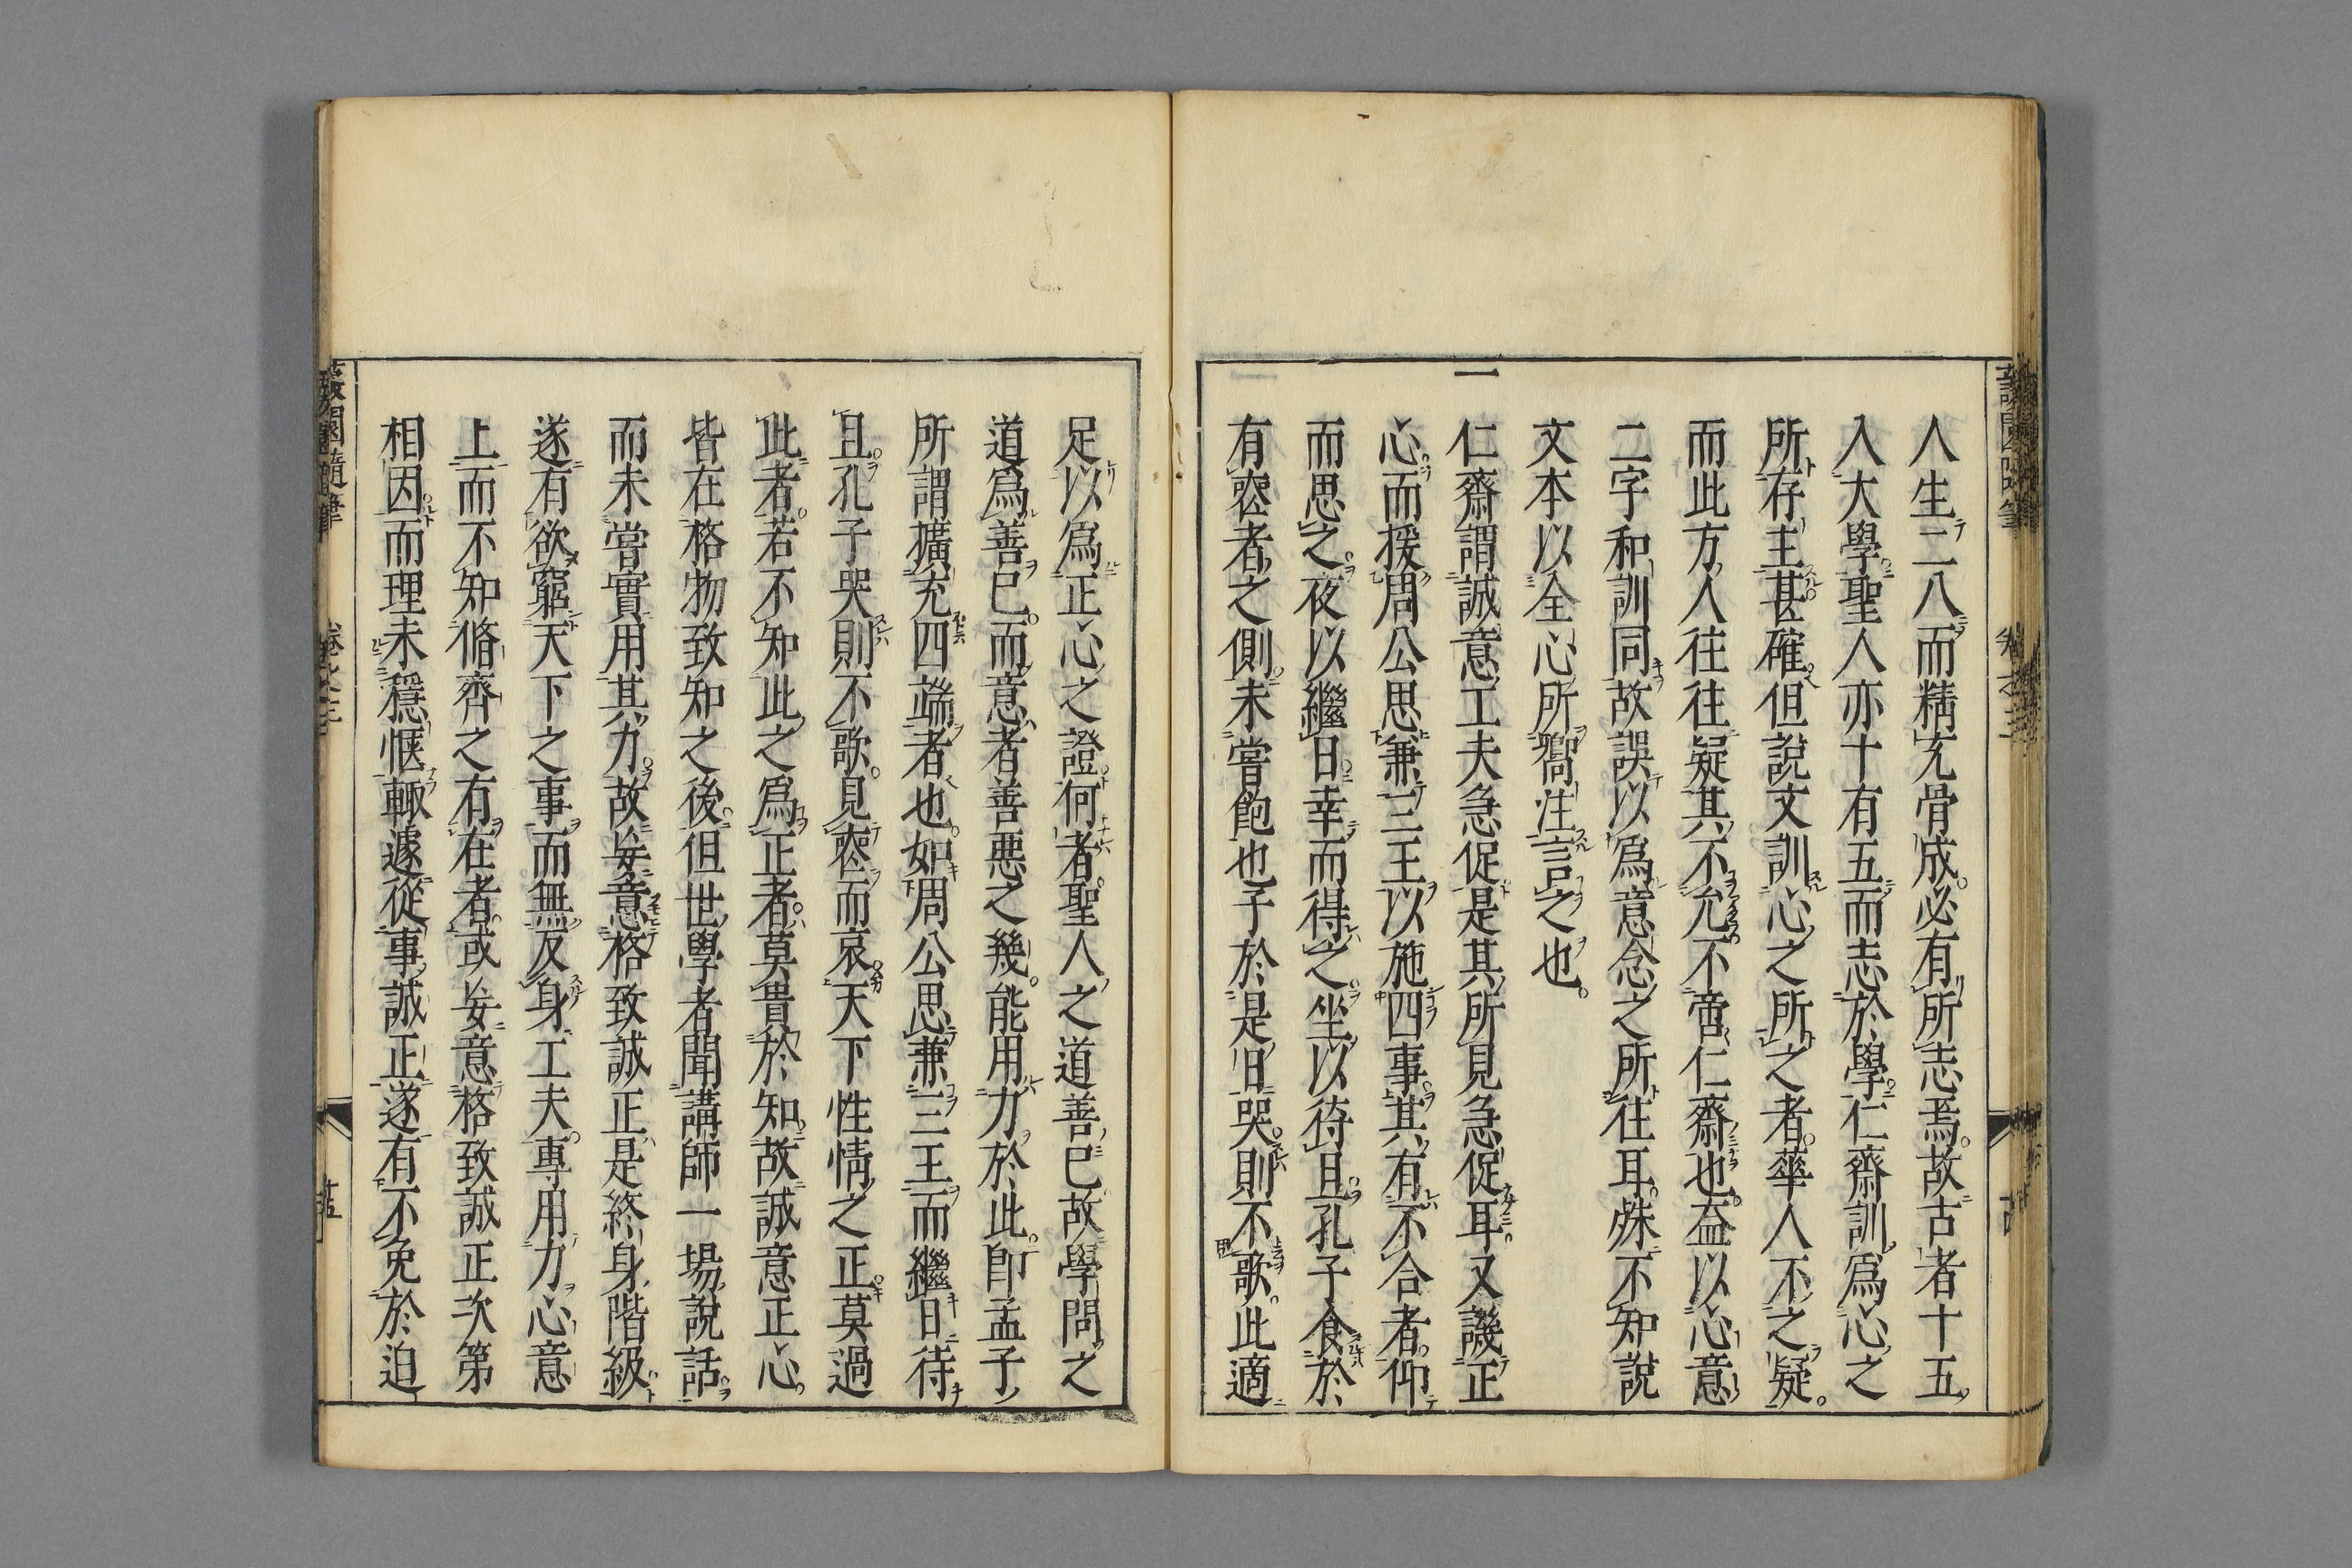 人生二八而精充骨成必有所志焉故古者十五
入大學聖人亦十有五而志於學仁齋訓爲心之
所存主甚確但說文訓心之所之者華人不之疑
而此方人往往疑其不允不啻仁齋也益以心意
二字和訓同故誤以爲意念之所往耳殊不知說
文本以全心所嚮注言之也
一 仁齋謂誠意工夫急促是其所見急促耳又譏正
心而援周公思兼三王以施四事其有不合者仰
而思之夜以繼日幸而得之坐以待旦孔子食於
有喪者之側未嘗飽也子於是日哭則不歌此適
足以爲正心之證何者聖人之道善已故學問之
道爲善已而意者善惡之幾能用力於此卽孟子
所謂擴充四端者也如周公思兼三王而繼日待
旦孔子哭則不歌見喪而哀天下性情之正莫過
此者若不知此之爲正者莫貴於知故誠意正心
皆在格物致知之後但世學者聞講師一場說話
而未嘗實用其力故妄意格致誠正是終身階級
遂有欲窮天下之事而無反身工夫專用力心意
上而不知脩齊之有在者或妄意格致誠正次第
相因而理未穩愜輙遽從事誠正遂有不免於迫
蘐園隨筆 卷之三